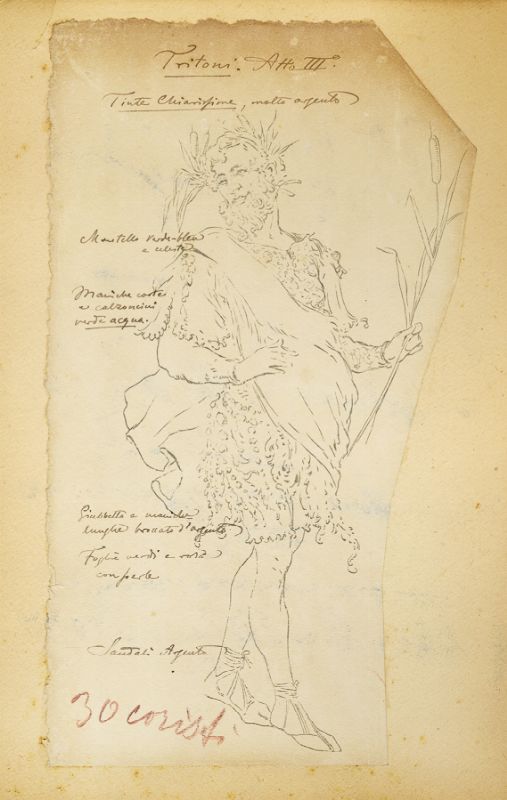 Tritoni. Atto III°.
Tinte Chiarissime, molto argento
Mantello verde-bleu
e celeste
Maniche corte
e calzoncini
verde acqua.
Giubbetto e maniche
lunghe broccato d'argento
Foglie verdi e rosa
con perle
Sandali Argento
30 coristi